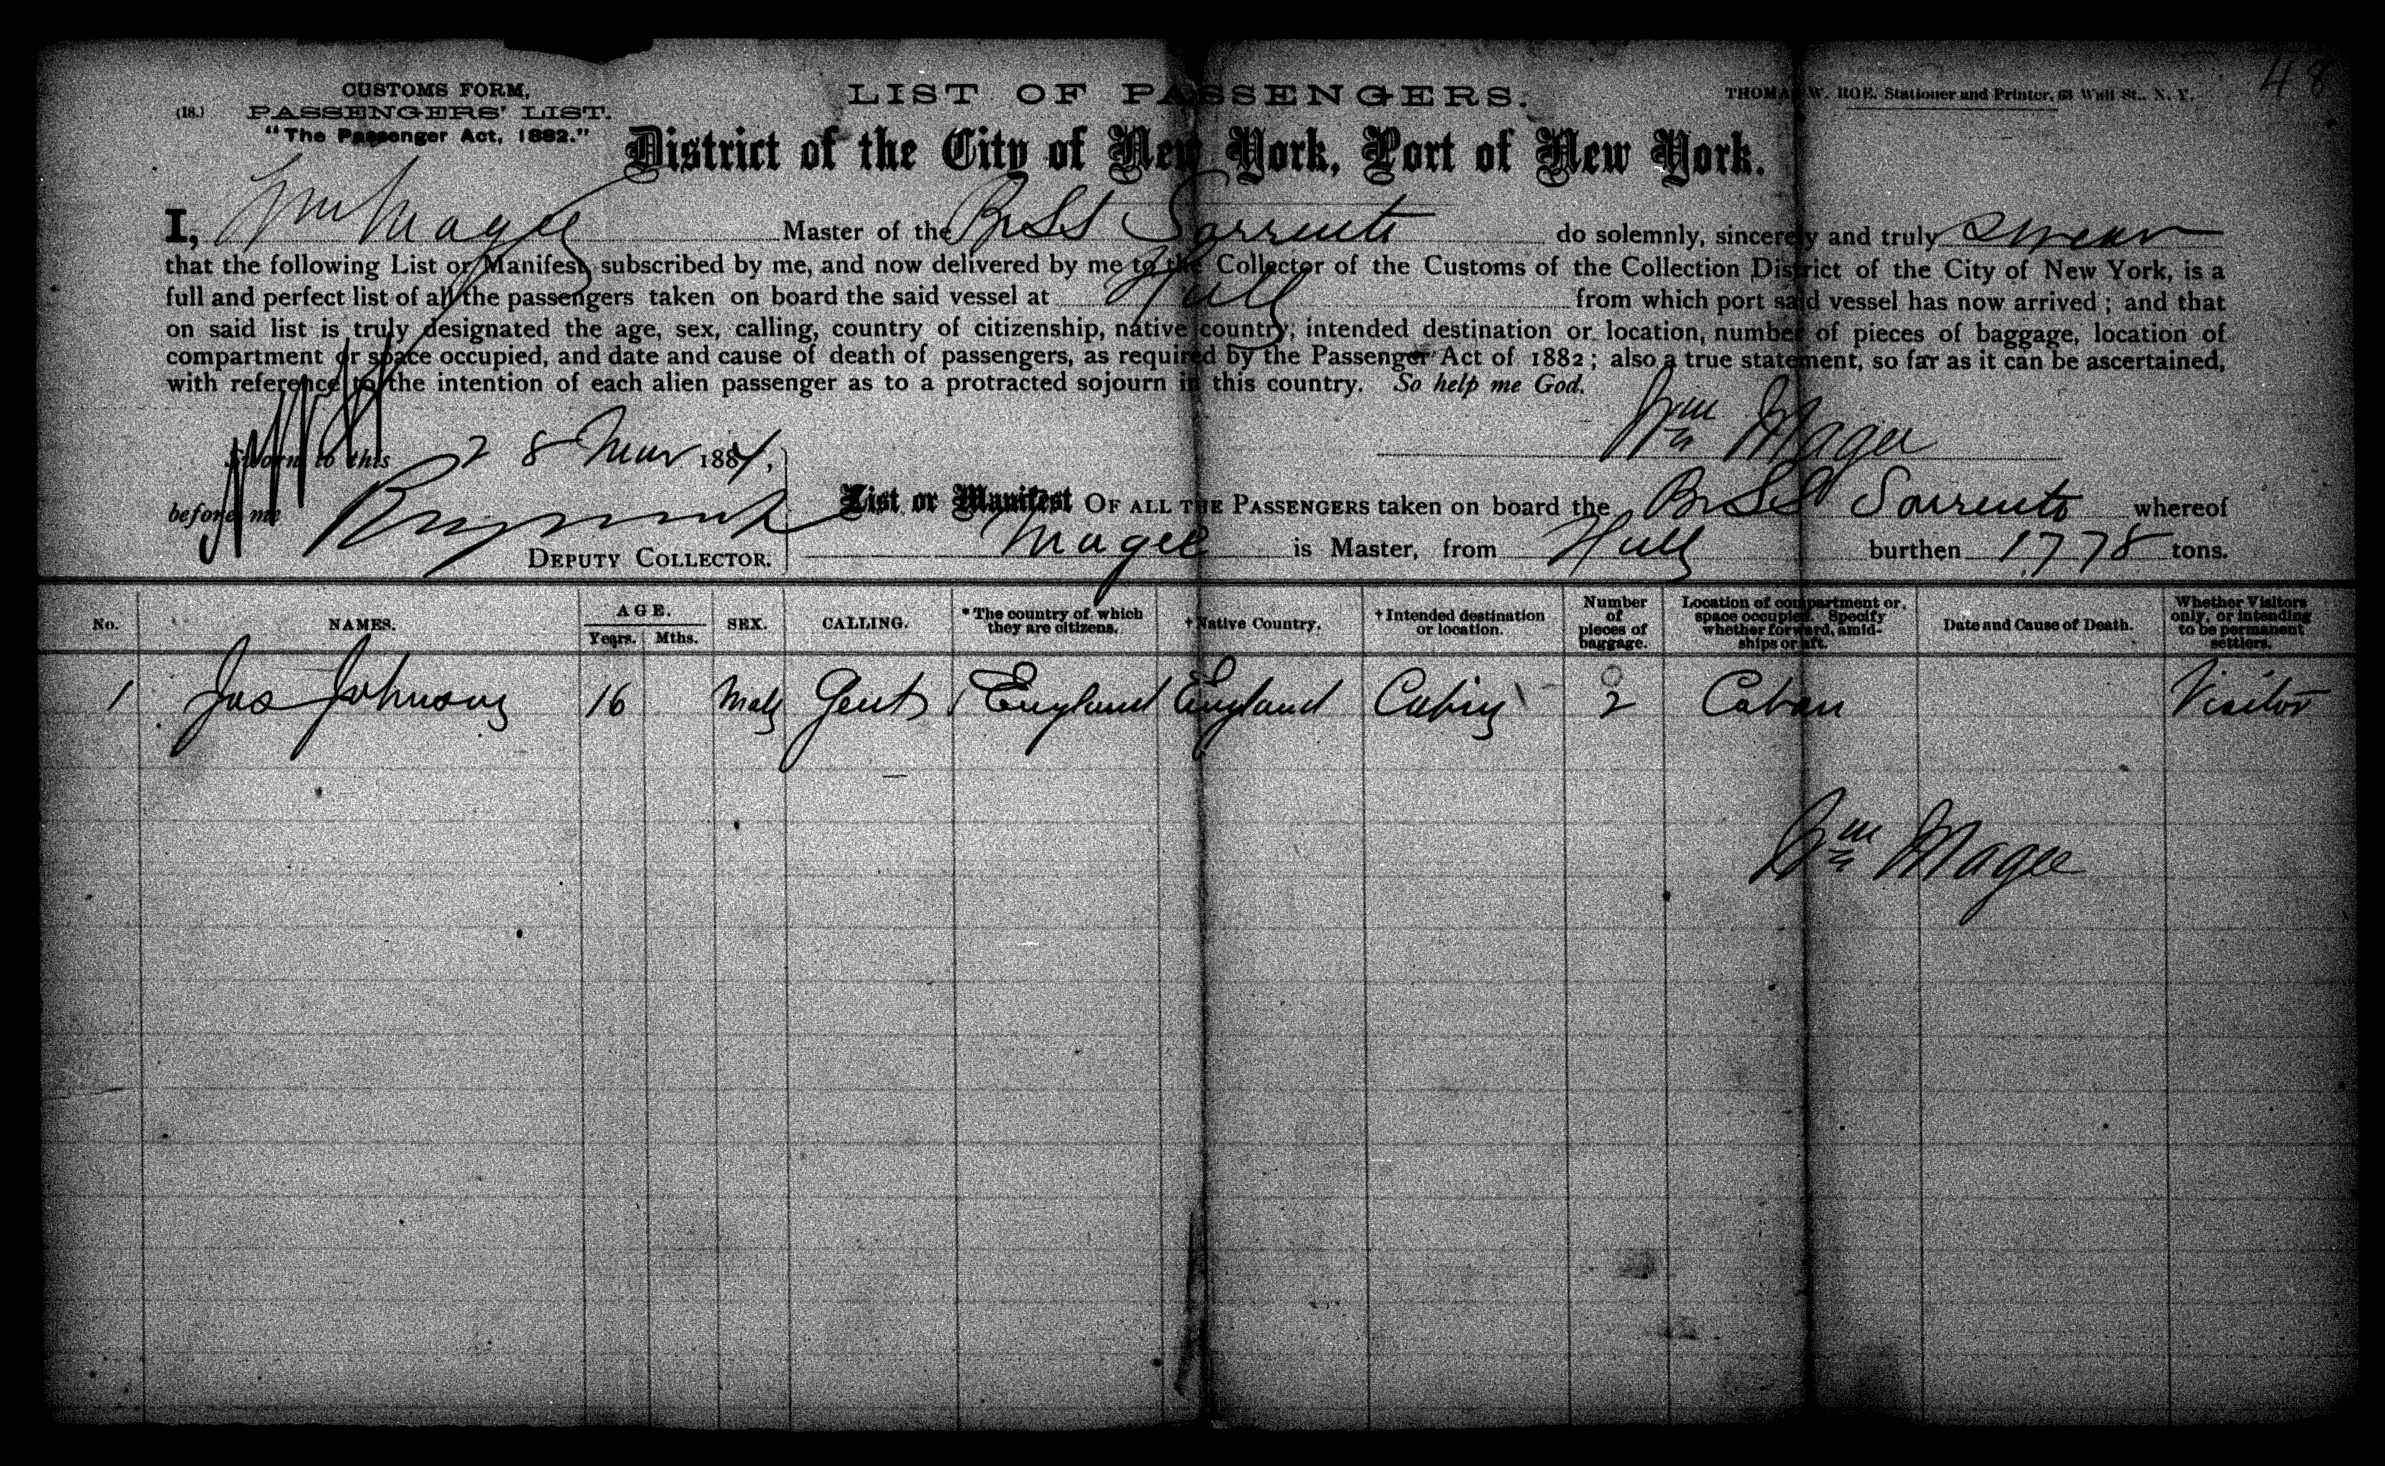 48
CUSTOMS FORM,
(18.) PASSENGERS' LIST.
"The Passenger Act, 1882."
LIST OF PASSENGERS.
THOMAS W. ROE, Stationer and Printer, 63 Wall St., N. Y.
District of the City of New York, Port of New York.
I, Wm Magee Master of the Br SS Sorrento do solemnly, sincerely and truly swear
that the following List or Manifest, subscribed by me, and now delivered by me to the Collector of the Customs of the Collection District of the City of New York, is a
full and perfect list of all the passengers taken on board the said vessel at Hull from which port said vessel has now arrived; and that
on said list is truly designated the age, sex, calling, country of citizenship, native country, intended destination or location, number of pieces of baggage, location of
compartment or space occupied, and date and cause of death of passengers, as required by the Passenger Act of 1882; also a true statement, so far as it can be ascertained,
with reference to the intention of each alien passenger as to a protracted sojourn in this country. So help me God.
Wm Magee
Sworn to this 28 Mar 1884,
before me
DEPUTY COLLECTOR.
List or Manifest OF ALL THE PASSENGERS taken on board the Br SS Sorrento whereof
Magee is Master, from Hull burthen 1778 tons.
No. NAMES. AGE. Years. Mths. SEX. CALLING. * The country of which they are citizens. † Native Country. † Intended destination or location. Number of pieces of baggage. Location of compartment or space occupied. Specify whether forward, amidships or aft. Date and Cause of Death. Whether Visitors only, or intending to be permanent settlers.
1 Jas Johnson 16 Male Gent England England Cabin 2 Caban Visitor
Wm Magee